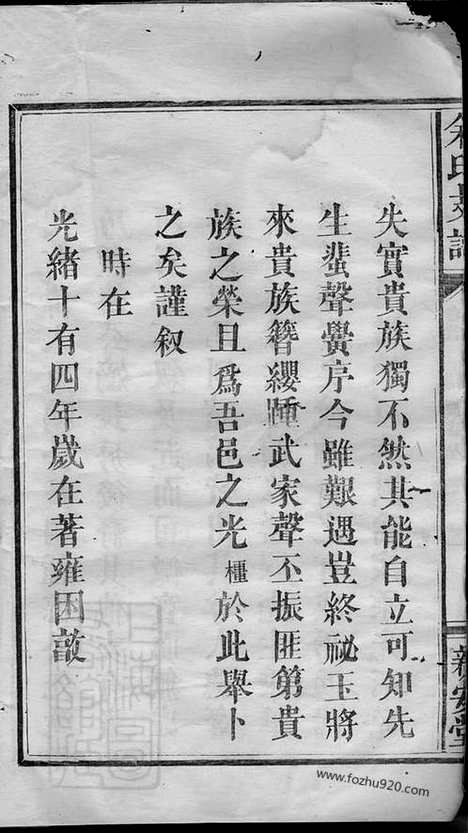 失實貴族獨不然其能自立可知先
生蜚聲黌序今雖艱遇豈終祕玉將
來貴族簪纓踵武家聲丕振匪第貴
族之榮且爲吾邑之光櫃於此舉卜
之矣謹叙
時在
光緒十有四年歲在著雍困敦
氏支譜
新安堂
www.fozhu920.com